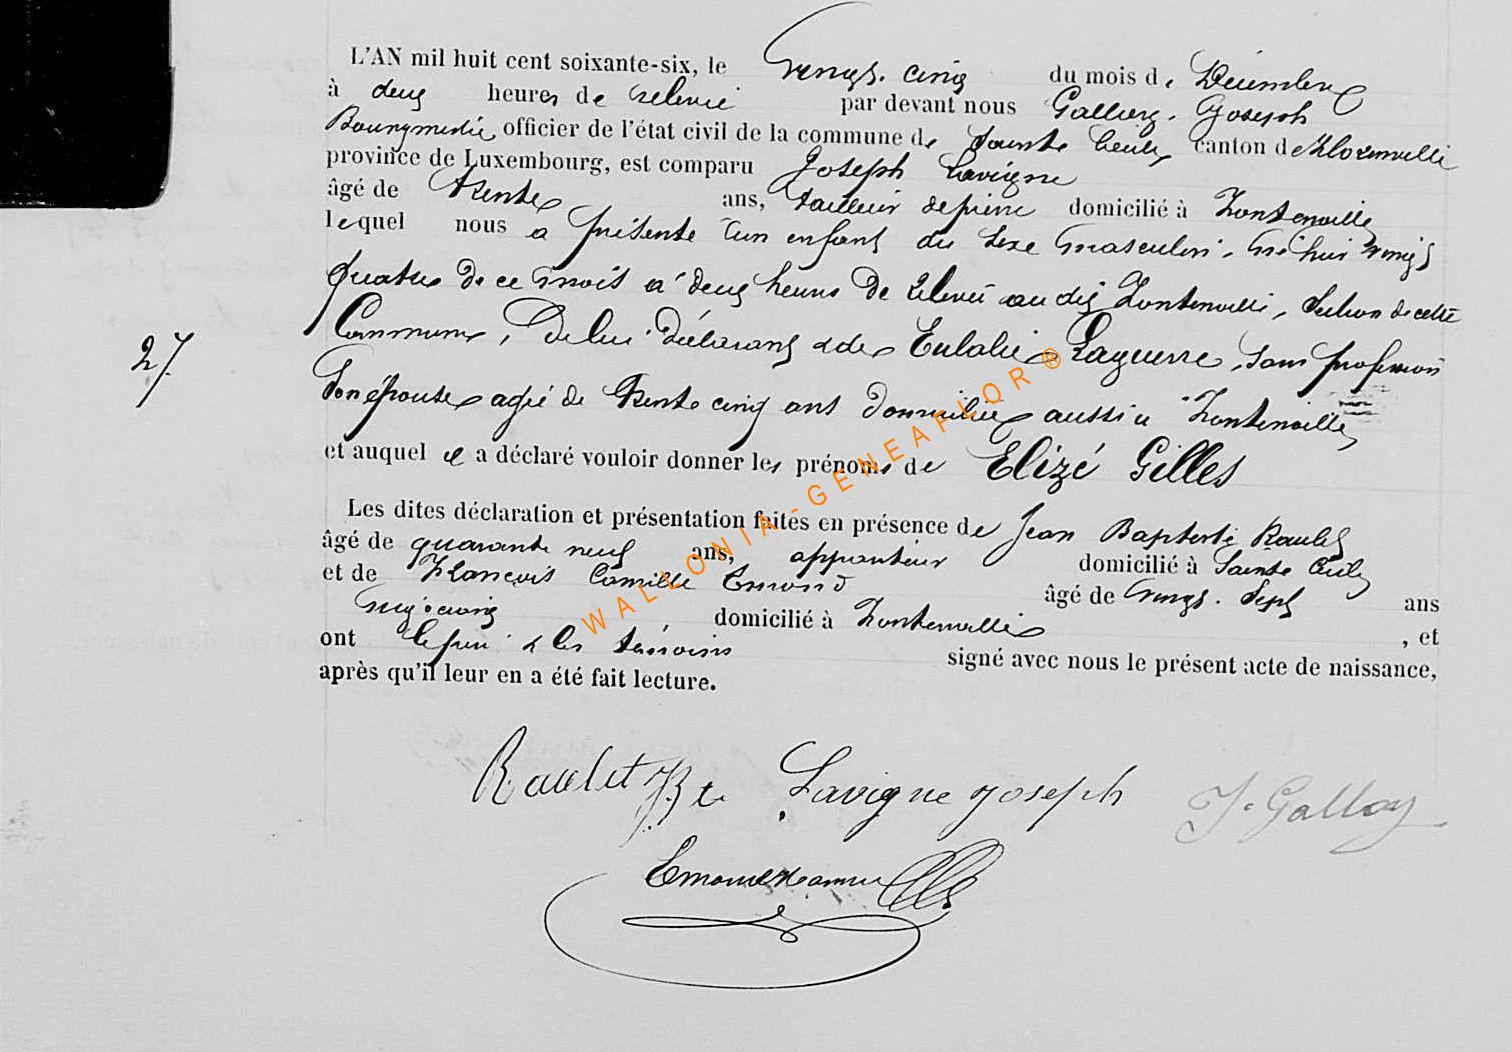 L'AN mil huit cent soixante-six, le vingt. cinq du mois de Décembre
à deux heures de relevée par devant nous Joseph
Bourgmestre officier de l'état civil de la commune de Sainte Cécile canton de Florenville
province de Luxembourg, est comparu Joseph Lavigne
âgé de trente ans, tailleur de pierre domicilié à Fontenoille
lequel nous a présenté un enfant du sexe masculin, né hier vingt
quatre de ce mois à deux heures de relevée au dit Fontenoille, section de cette
27. Commune, de lui déclarant & de Eulalie Laguerre, sans profession
son épouse agée de trente cinq ans domiciliée aussi à Fontenoille
et auquel il a déclaré vouloir donner les prénoms de Elizé Gilles
Les dites déclaration et présentation faites en présence de Jean Baptiste Raulet
âgé de quarante neuf ans, appariteur domicilié à Sainte Cécile
et de François Camille Emond âgé de vingt. sept ans
négociant domicilié à Fontenoille , et
ont le père & les témoins signé avec nous le présent acte de naissance,
après qu'il leur en a été fait lecture.
Raulet JBte Lavigne joseph J. Galloy
Emond
WALLONIA-GENEAFLOR®